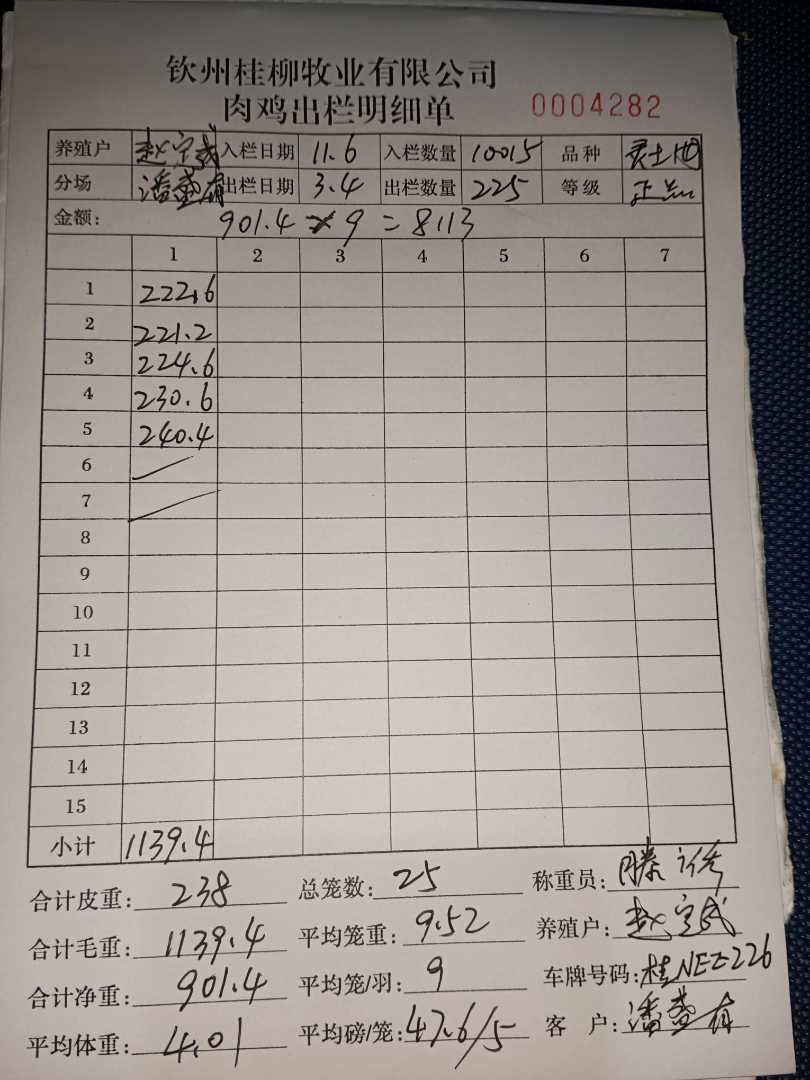 钦州桂柳牧业有限公司
肉鸡出栏明细单 0004282
养殖户 赵宗武 入栏日期 11.6 入栏数量 10015 品种 灵土
分场 潘 出栏日期 3.4 出栏数量 225 等级 正品
金额: 901.4 × 9 = 8113
1 2 3 4 5 6 7
1 222.6
2 221.2
3 224.6
4 230.6
5 240.4
6
7
8
9
10
11
12
13
14
15
小计 1139.4
合计皮重: 238 总笼数: 25 称重员: 滕
合计毛重: 1139.4 平均笼重: 9.52 养殖户: 赵宗武
合计净重: 901.4 平均笼/羽: 9 车牌号码: 桂NEZ226
平均体重: 4.01 平均磅/笼: 47.6/5 客 户: 潘